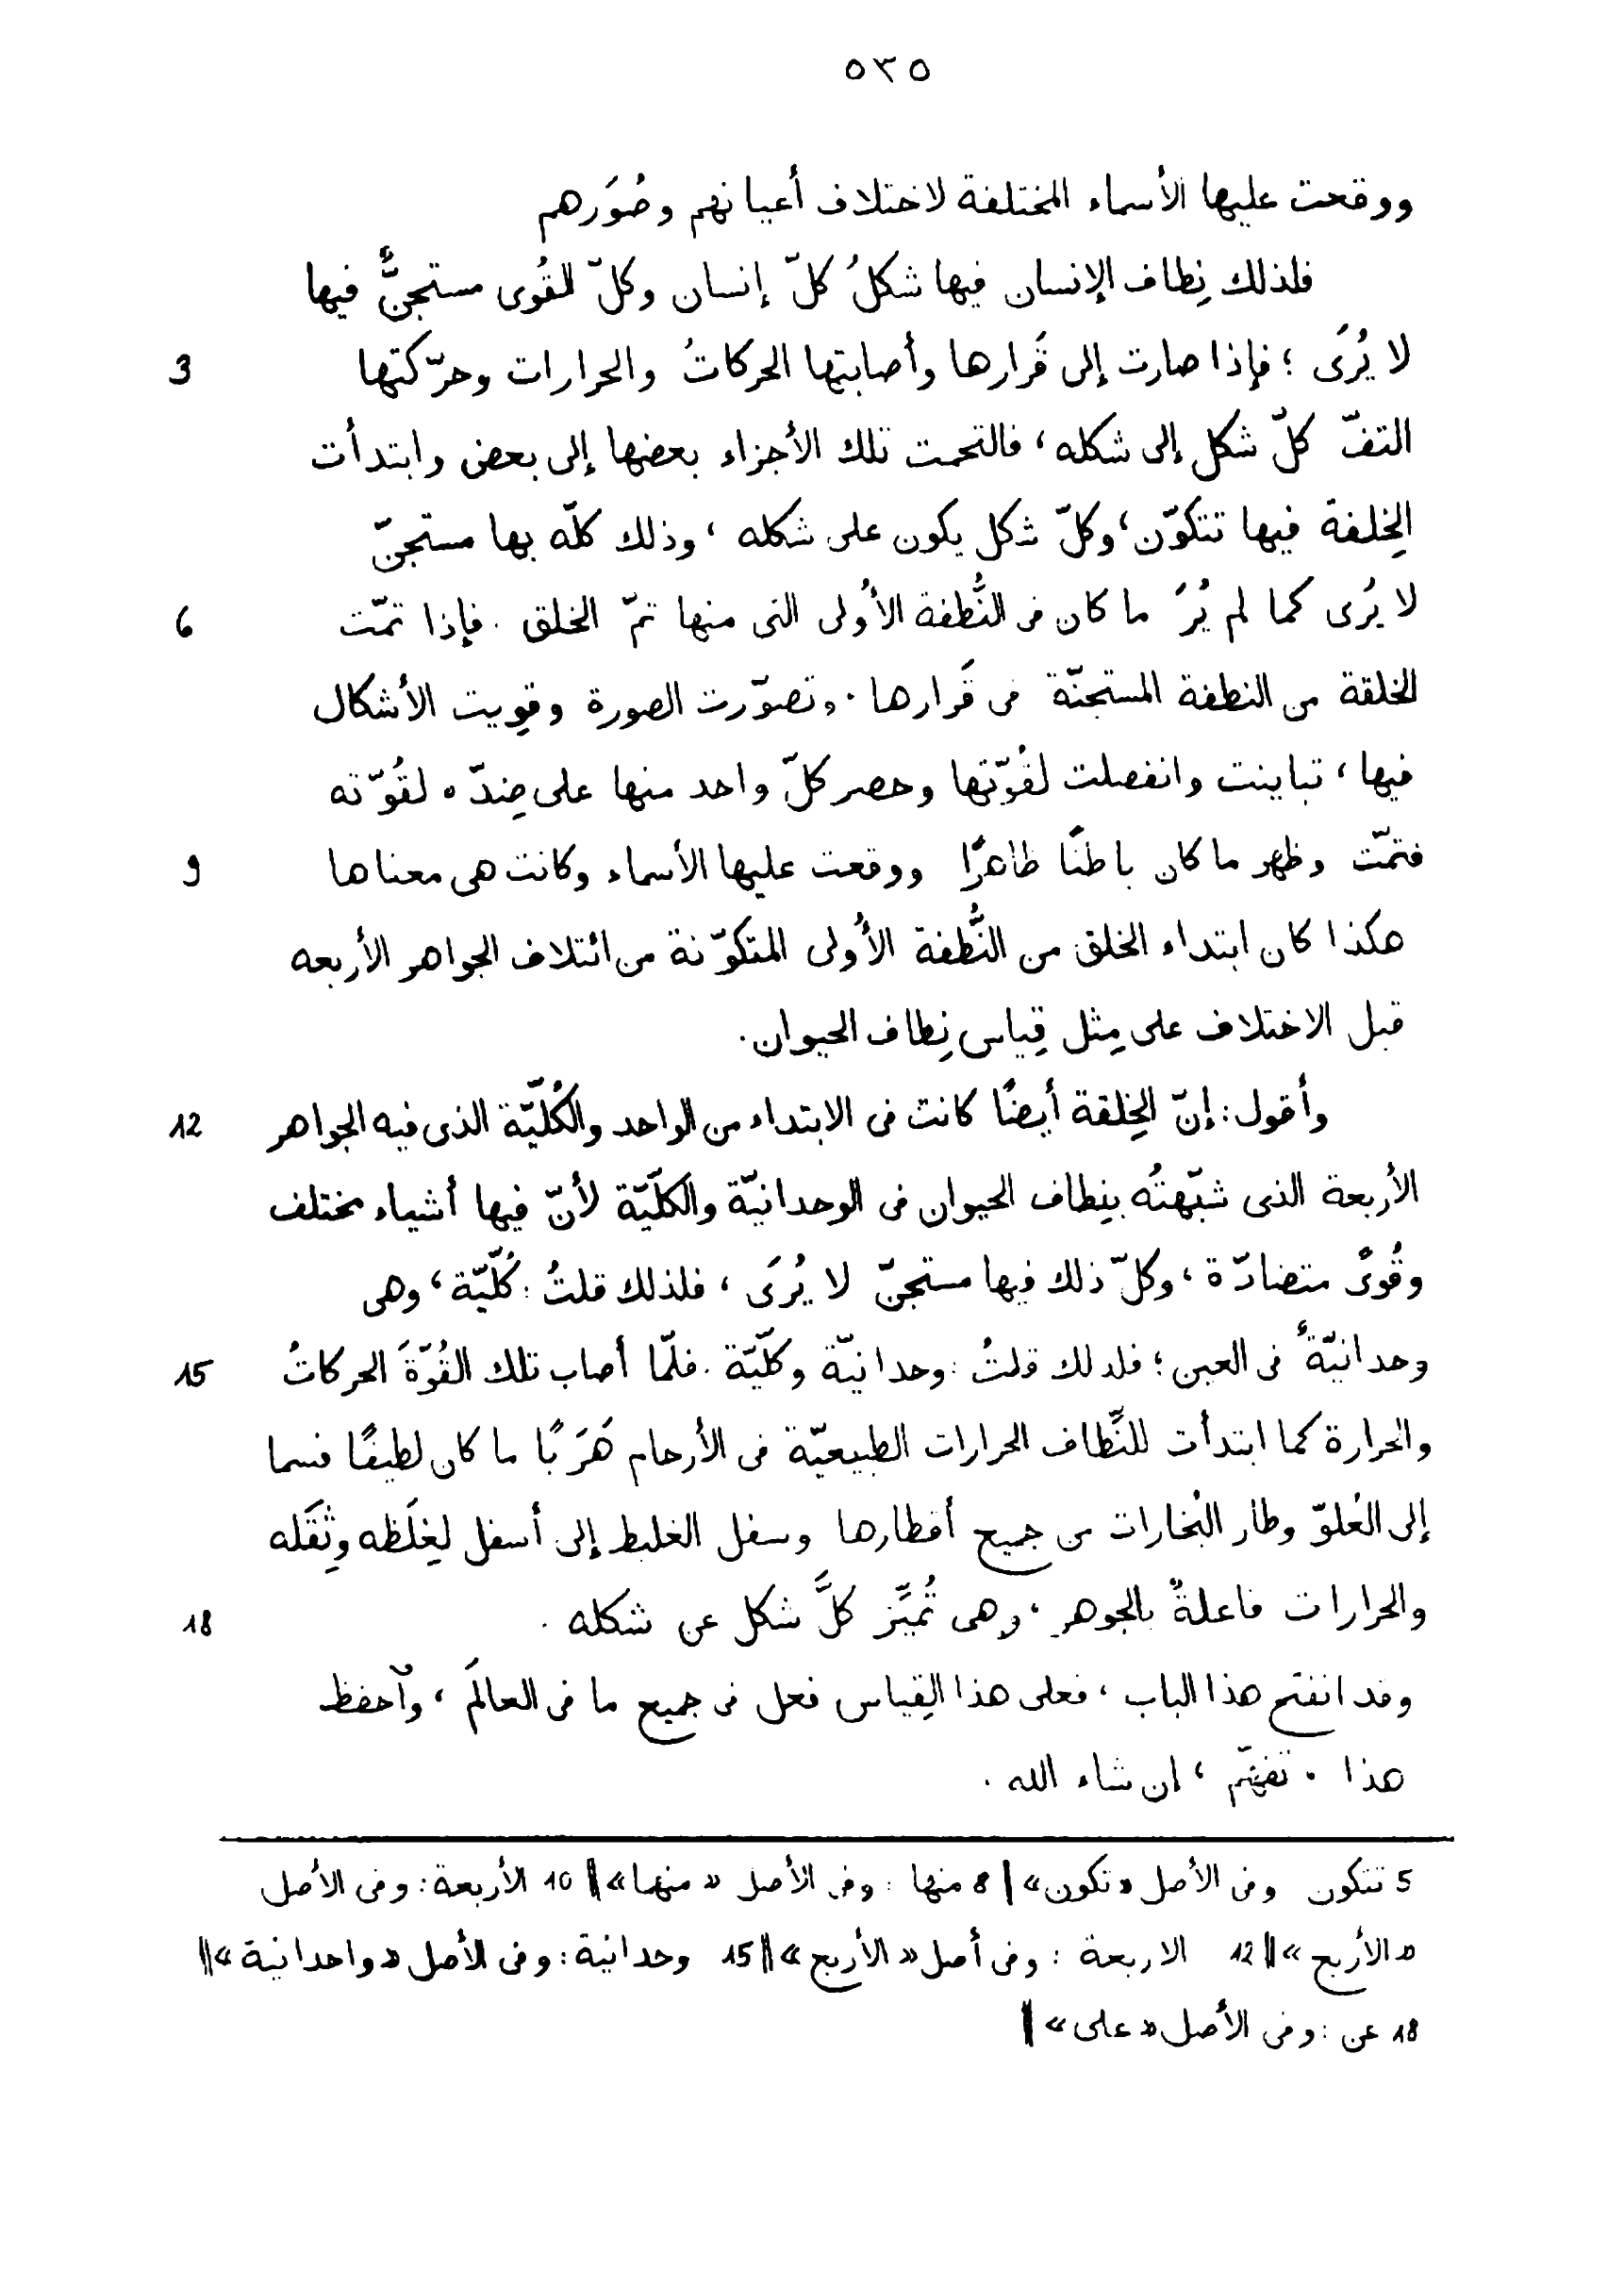 ٥٣٥
ووقعت عليها الأسماء المختلفة لاختلاف أعيانهم وصُوَرهم
فلذلك نِطاف الإنسان فيها شكلُ كلّ إنسان وكلّ القُوى مستجنٌّ فيها
لا يُرَى ؛ فإذا صارت إلى قَرارها وأصابتها الحركاتُ والحرارات وحرّكتها 3
التفّ كلّ شكل إلى شكله ، فالتحمت تلك الأجزاء بعضها إلى بعض وابتدأت
الخِلقة فيها تتكوّن ، وكلّ شكل يكون على شكله ، وذلك كلّه بها مستجنّ
لا يُرى كما لم يُرَ ما كان فى النُّطفة الأُولى التى منها تمّ الخلق . فإذا تمّت 6
الخلقة من النطفة المستجنّة فى قَرارها . وتصوّرت الصورة وقوِيت الأشكال
فيها ، تباينت وانفصلت لقُوّتها وحصر كلّ واحد منها على ضِدّه لقُوّته
فتمّت وظهر ما كان باطنًا ظاهرًا ووقعت عليها الأسماء وكانت هى معناها 9
هكذا كان ابتداء الخلق من النُّطفة الأُولى المتكوّنة من ائتلاف الجواهر الأربعه
قبل الاختلاف على مِثل قِياس نِطاف الحيوان.
وأقول : إنّ الخِلقة أيضًا كانت فى الابتداء من الواحد والكُلّيّة الذى فيه الجواهر 12
الأربعة الذى شبّهتُه بنِطاف الحيوان فى الوحدانيّة والكلّيّة لأنّ فيها أشياء مختلف
وقُوىً متضادّة ، وكلّ ذلك فيها مستجنّ لا يُرَى ، فلذلك قلتُ : كُلّيّة ، وهى
وحدانيّةٌ فى العين ؛ فلذلك قلتُ : وحدانيّة وكلّيّة . فلمّا أصاب تلك القُوّةَ الحركاتُ 15
والحرارة كما ابتدأت للنِّطاف الحرارات الطبيعيّة فى الأرحام هَرَبًا ما كان لطيفًا فسما
إلى العُلوّ وطار البُخارات من جميع أقطارها وسفل الغليظ إلى أسفل لغِلَظه وثِقَله
والحرارات فاعلةٌ بالجوهر ، وهى تُميِّز كلَّ شكل عن شكله . 18
وقد انفتح هذا الباب ، فعلى هذا القِياس فعل فى جميع ما فى العالَم ، وٱحفظ
هذا . تفهّم ، إن شاء الله .
5 تتكون وفى الأصل «تكون» || 8 منها : وفى الأصل «منها» || 10 الأربعة : وفى الأصل
«الأربع» || 12 الاربعة : وفى أصل «الأربع» || 15 وحدانية : وفى الأصل «واحدانية» ||
18 عن : وفى الأصل «على» ||